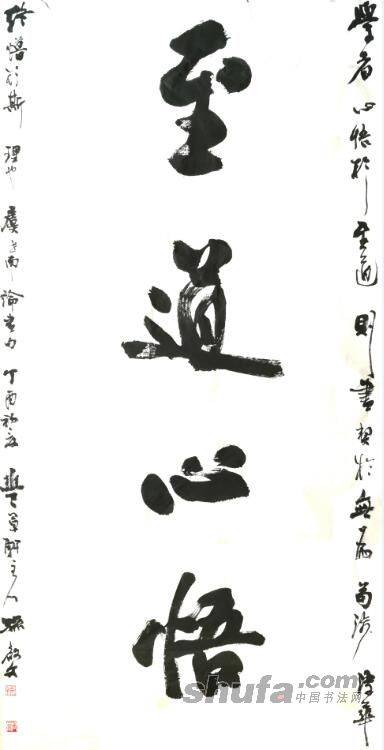 學者心悟於至道則書契於無為苟涉浮華
至道心悟
終懵於斯理也虞世南論書句丁酉初夏草軒主人
shufa.com
中国书法网